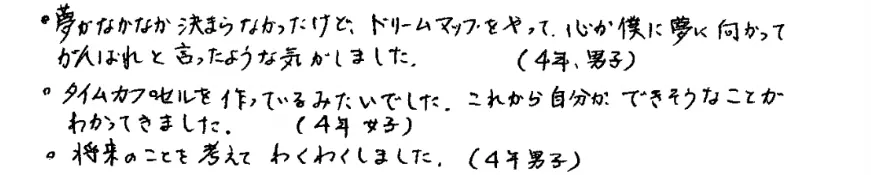 ・夢がなかなか決まらなかったけど、ドリームマップをやって、心が僕に夢に向かって
がんばれと言ったような気がしました。 (4年、男子)
・タイムカプセルを作っているみたいでした。これから自分ができそうなことが
わかってきました。 (4年女子)
・将来のことを考えてわくわくしました。(4年男子)